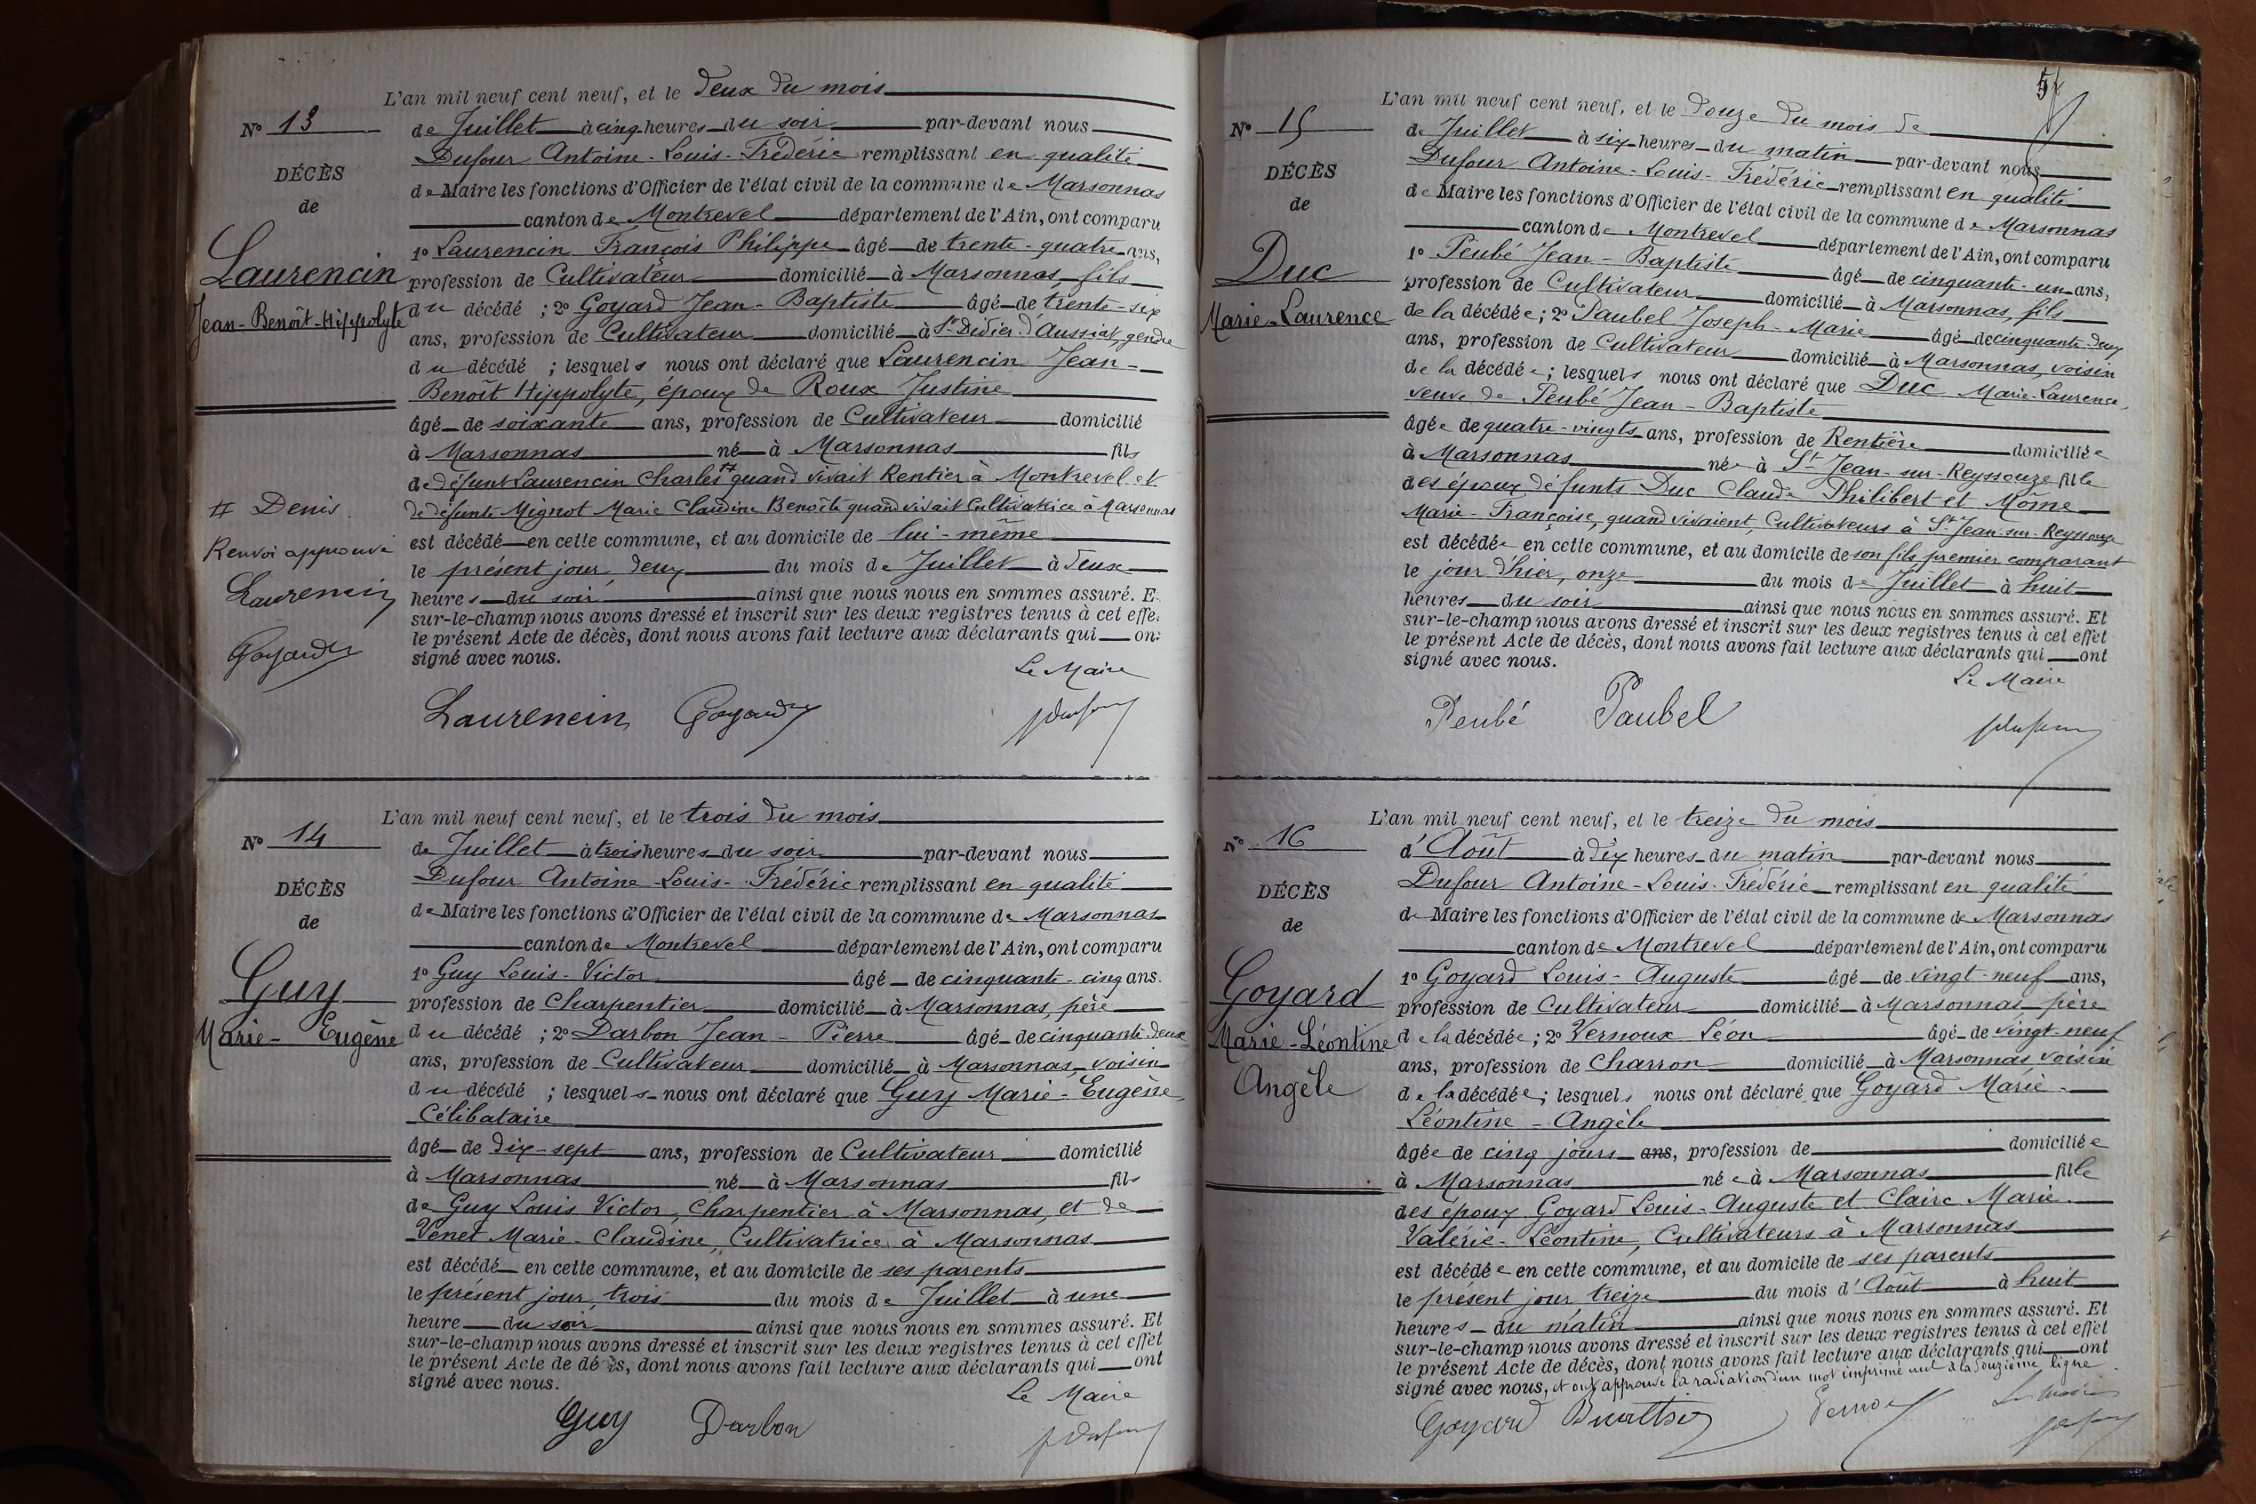 L'an mil neuf cent neuf, et le deux du mois
N° 13
de Juillet à cinq heures du soir par-devant nous
Dufour Antoine-Louis-Frédéric remplissant en qualité
DÉCÈS
de Maire les fonctions d'Officier de l'état civil de la commune de Marsonnas
de
canton de Montrevel département de l'Ain, ont comparu
1° Laurencin François Philippe âgé de trente-quatre ans,
Laurencin
profession de Cultivateur domicilié à Marsonnas, fils
Jean-Benoît-Hippolyte
du décédé ; 2° Goyard Jean-Baptiste âgé de trente-six
ans, profession de Cultivateur domicilié à St Didier d'Aussiat, gendre
du décédé ; lesquels nous ont déclaré que Laurencin Jean-
Benoît Hippolyte, époux de Roux Justine
âgé de soixante ans, profession de Cultivateur domicilié
à Marsonnas né à Marsonnas fils
de défunt Laurencin Charles # quand vivait Rentier à Montrevel et
de défunte Mignot Marie Claudine Benoîte quand vivait Cultivatrice à Marsonnas
# Denis
Renvoi approuvé
est décédé en cette commune, et au domicile de lui-même
le présent jour, deux du mois de Juillet à deux
Laurencin
heures du soir ainsi que nous nous en sommes assuré. E
sur-le-champ nous avons dressé et inscrit sur les deux registres tenus à cet effe
le présent Acte de décès, dont nous avons fait lecture aux déclarants qui on
Goyard
signé avec nous.
Le Maire
Laurencin Goyard
L'an mil neuf cent neuf, et le trois du mois
N° 14
de Juillet à trois heures du soir par-devant nous
Dufour Antoine-Louis-Frédéric remplissant en qualité
DÉCÈS
de Maire les fonctions d'Officier de l'état civil de la commune de Marsonnas
de
canton de Montrevel département de l'Ain, ont comparu
1° Guy Louis-Victor âgé de cinquante-cinq ans.
Guy
profession de Charpentier domicilié à Marsonnas, père
Marie-Eugène
du décédé ; 2° Darbon Jean-Pierre âgé de cinquante-deux
ans, profession de Cultivateur domicilié à Marsonnas, voisin
du décédé ; lesquels nous ont déclaré que Guy Marie-Eugène,
Célibataire
âgé de dix-sept ans, profession de Cultivateur domicilié
à Marsonnas né à Marsonnas fils
de Guy Louis Victor, Charpentier à Marsonnas, et de
Venet Marie-Claudine, Cultivatrice à Marsonnas
est décédé en cette commune, et au domicile de ses parents
le présent jour, trois du mois de Juillet à une
heure du soir ainsi que nous nous en sommes assuré. Et
sur-le-champ nous avons dressé et inscrit sur les deux registres tenus à cet effet
le présent Acte de décès, dont nous avons fait lecture aux déclarants qui ont
signé avec nous.
Le Maire
Guy Darbon
L'an mil neuf cent neuf, et le douze du mois de
N° 15
de Juillet à six heures du matin par-devant nous
Dufour Antoine-Louis-Frédéric remplissant en qualité
DÉCÈS
de Maire les fonctions d'Officier de l'état civil de la commune de Marsonnas
de
canton de Montrevel département de l'Ain, ont comparu
1° Peubé Jean-Baptiste âgé de cinquante-un ans,
Duc
profession de Cultivateur domicilié à Marsonnas, fils
Marie-Laurence
de la décédée ; 2° Paubel Joseph-Marie âgé de cinquante-deux
ans, profession de Cultivateur domicilié à Marsonnas, voisin
de la décédée ; lesquels nous ont déclaré que Duc Marie-Laurence,
veuve de Peubé Jean-Baptiste
âgée de quatre-vingts ans, profession de Rentière domiciliée
à Marsonnas née à St Jean-sur-Reyssouze fille
des époux défunts Duc Claude Philibert et Môme
Marie-Françoise, quand vivaient, Cultivateurs à St Jean-sur-Reyssouze
est décédée en cette commune, et au domicile de son fils premier comparant
le jour d'hier, onze du mois de Juillet à huit
heures du soir ainsi que nous nous en sommes assuré. Et
sur-le-champ nous avons dressé et inscrit sur les deux registres tenus à cet effet
le présent Acte de décès, dont nous avons fait lecture aux déclarants qui ont
signé avec nous.
Le Maire
Peubé Paubel
L'an mil neuf cent neuf, et le treize du mois
N° 16
d'Août à dix heures du matin par-devant nous
Dufour Antoine-Louis-Frédéric remplissant en qualité
DÉCÈS
de Maire les fonctions d'Officier de l'état civil de la commune de Marsonnas
de
canton de Montrevel département de l'Ain, ont comparu
1° Goyard Louis-Auguste âgé de vingt-neuf ans,
Goyard
profession de Cultivateur domicilié à Marsonnas père
Marie-Léontine
de la décédée ; 2° Vernoux Léon âgé de vingt-neuf
ans, profession de Charron domicilié à Marsonnas voisin
Angèle
de la décédée ; lesquels nous ont déclaré que Goyard Marie-
Léontine-Angèle
âgée de cinq jours ans, profession de domiciliée
à Marsonnas née à Marsonnas fille
des époux Goyard Louis-Auguste et Claire Marie
Valérie-Léontine, Cultivateurs à Marsonnas
est décédée en cette commune, et au domicile de ses parents
le présent jour treize du mois d'Août à huit
heures du matin ainsi que nous nous en sommes assuré. Et
sur-le-champ nous avons dressé et inscrit sur les deux registres tenus à cet effet
le présent Acte de décès, dont nous avons fait lecture aux déclarants qui ont
signé avec nous, et ont approuvé la radiation d'un mot imprimé nul à la douzième ligne.
Le Maire
Goyard